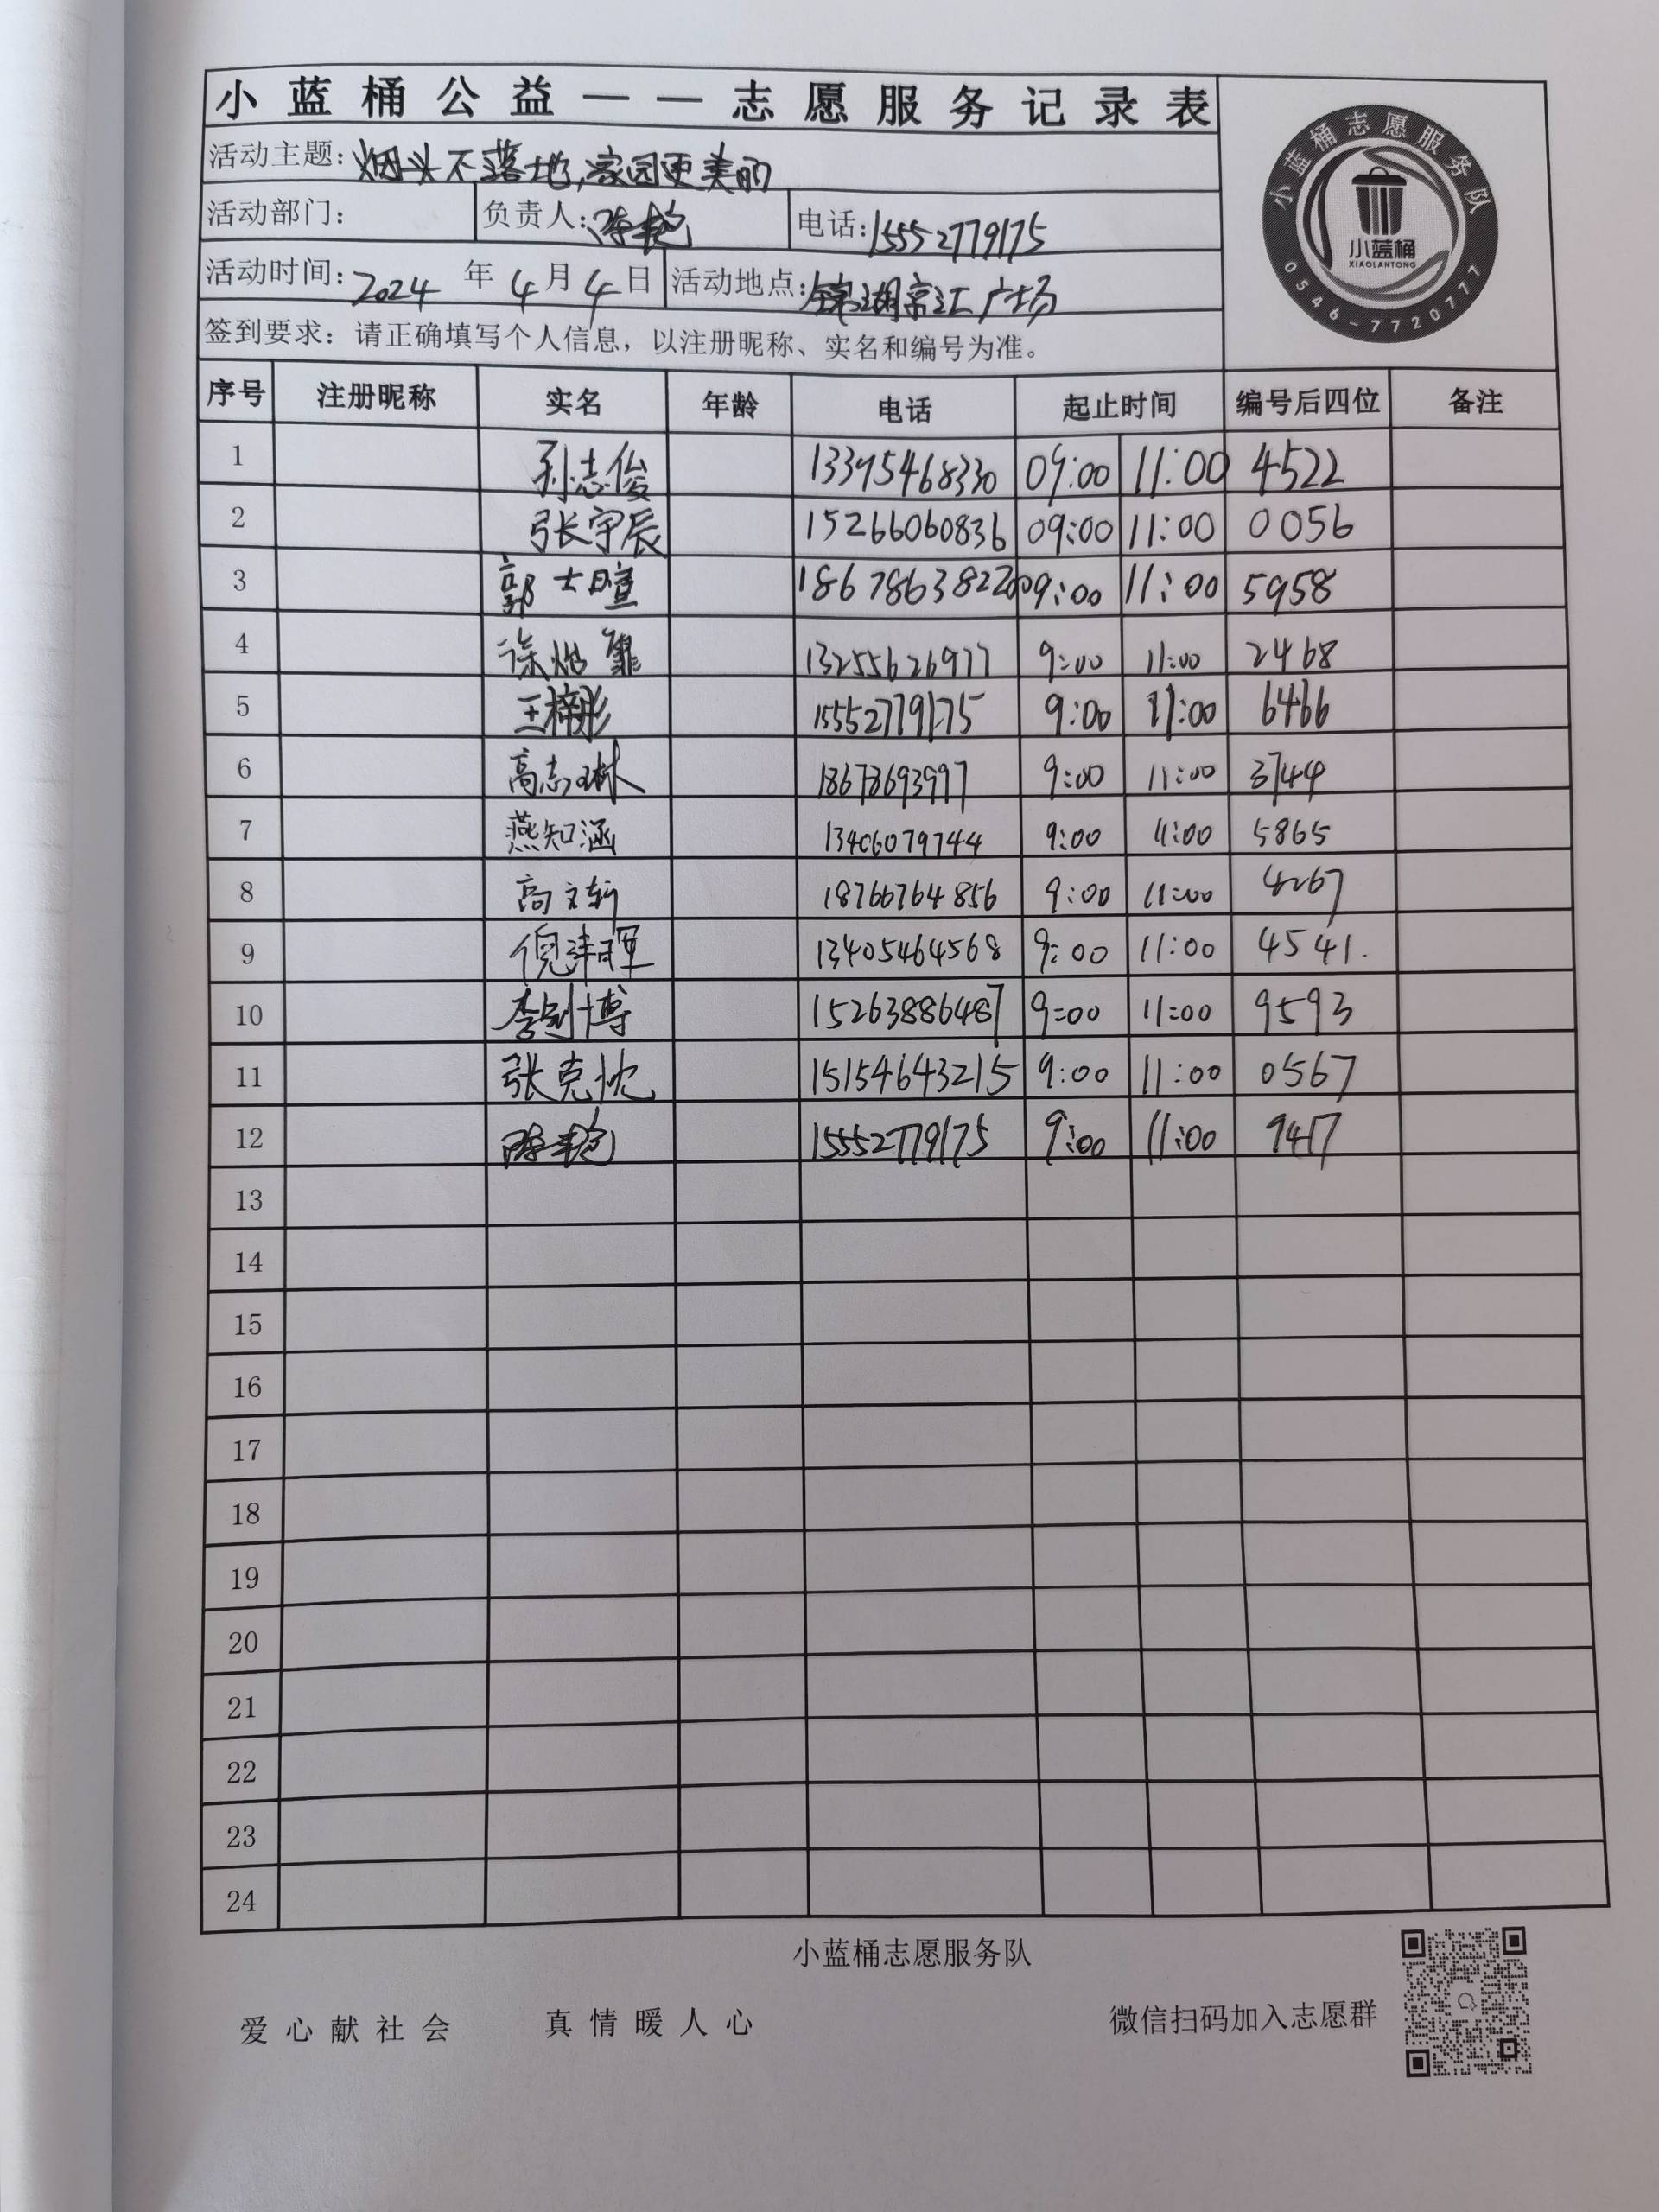 小蓝桶公益——志愿服务记录表
小蓝桶志愿服务队
小蓝桶
XIAOLANTONG
0546-7720777
活动主题：烟头不落地，家园更美丽
活动部门： 负责人：陈艳 电话：15552779175
活动时间：2024年4月4日 活动地点：锦湖京汇广场
签到要求：请正确填写个人信息，以注册昵称、实名和编号为准。
序号 注册昵称 实名 年龄 电话 起止时间 编号后四位 备注
1 孙志俊 13395468330 09:00 11:00 4522
2 张宇辰 15266060836 09:00 11:00 0056
3 郭士暄 18678638220 09:00 11:00 5958
4 徐 13255626977 9:00 11:00 2468
5 王梓彤 15552779175 9:00 11:00 6466
6 高志琳 18678693997 9:00 11:00 3744
7 燕知涵 13406079744 9:00 11:00 5865
8 高文轩 18766764856 9:00 11:00 4267
9 倪 13405464568 9:00 11:00 4541.
10 李 博 15263886487 9:00 11:00 9593
11 张克忱 15154643215 9:00 11:00 0567
12 陈艳 15552779175 9:00 11:00 9417
13
14
15
16
17
18
19
20
21
22
23
24
小蓝桶志愿服务队
爱心献社会 真情暖人心 微信扫码加入志愿群